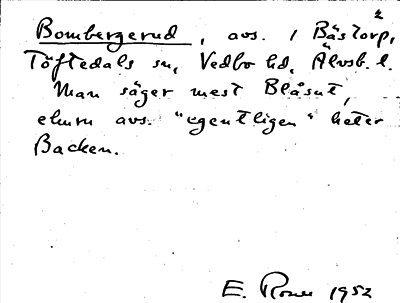 Bombergerud, avs. / Båstorp, 2
Töftedals sn, Vedbo hd, Älvsb. l.
Man säger mest Blåsut,
ehuru avs. "egentligen" heter
Backen.
E. Rosell 1952